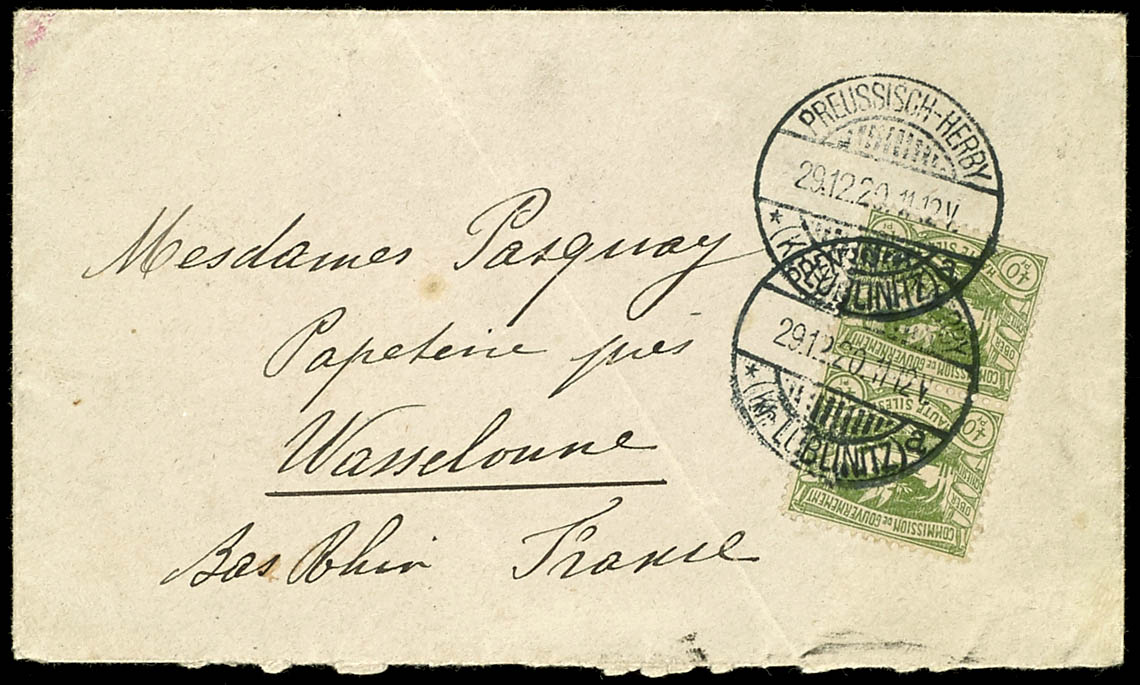 Mesdames Pasquay
Papeterie près
Wasselonne
Bas Rhin France
PREUSSISCH-HERBY
29.12.20.11-12V.
* (Kr. LUBLINITZ) a
PREUSSISCH-HERBY
29.12.20.11-12V.
* (Kr. LUBLINITZ) a
40 Pf
HAUTE SILESIE
OBER SCHLESIEN
COMMISSION DE GOUVERNEMENT
40 Pf
HAUTE SILESIE
OBER SCHLESIEN
COMMISSION DE GOUVERNEMENT